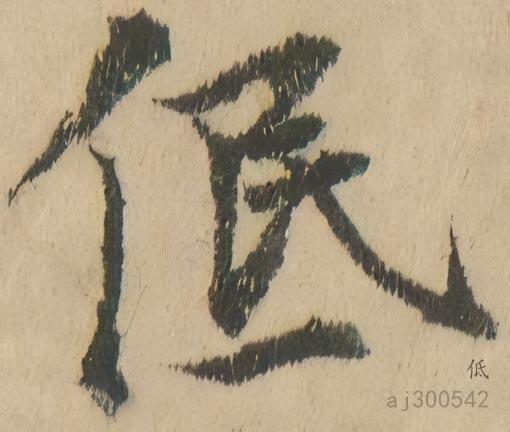 低
低
aj300542